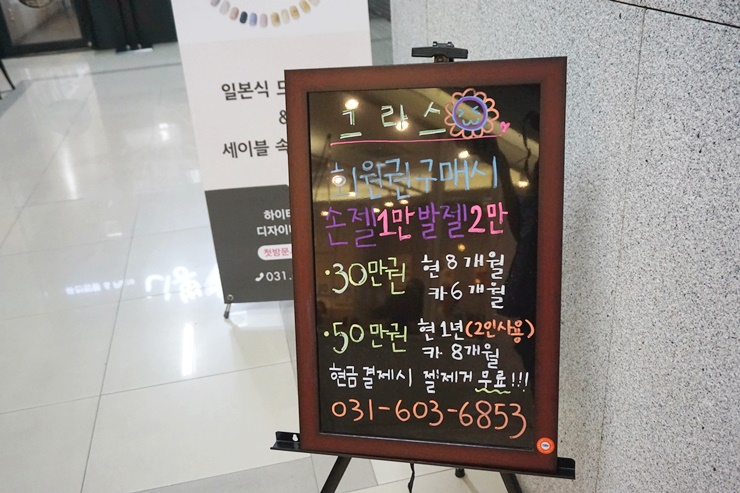 일본식
&
세이블 속
하이
디자이
첫방문
031.
프라스
회원권구매시
손젤1만발젤2만
·30만권 현8개월
카6개월
·50만권 현1년(2인사용)
카 8개월
현금결제시 젤제거 무료!!!
031-603-6853